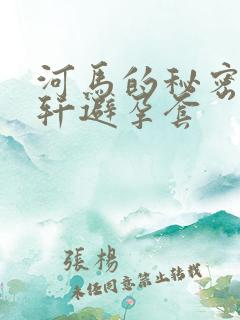 河馬的秘密
軒避孕套
張楊
未经同意禁止转载